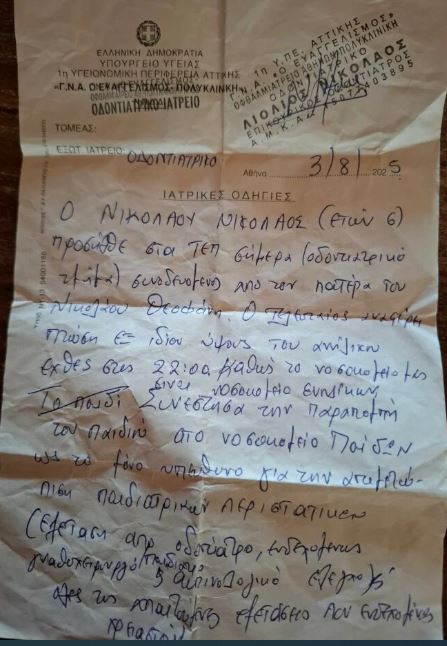 ΕΛΛΗΝΙΚΗ ΔΗΜΟΚΡΑΤΙΑ
ΥΠΟΥΡΓΕΙΟ ΥΓΕΙΑΣ
1η ΥΓΕΙΟΝΟΜΙΚΗ ΠΕΡΙΦΕΡΕΙΑ ΑΤΤΙΚΗΣ
"Γ.Ν.Α. Ο ΕΥΑΓΓΕΛΙΣΜΟΣ - ΠΟΛΥΚΛΙΝΙΚΗ"
ΟΔΟΝΤΙΑΤΡΕΙΟ
1η Υ.ΠΕ. ΑΤΤΙΚΗΣ
Ν.Α. "Ο ΕΥΑΓΓΕΛΙΣΜΟΣ"
ΟΦΘΑΛΜΙΑΤΡΕΙΟ ΑΘΗΝΩΝ ΠΟΛΥΚΛΙΝΙΚΗ
ΟΔΟΝΤΙΑΤΡΙΚΟ
ΝΙΚΟΛΑΟΣ
ΟΔΟΝΤΙΑΤΡΟΣ
ΤΟΜΕΑΣ:
ΕΞΩΤ. ΙΑΤΡΕΙΟ: ΟΔΟΝΤΙΑΤΡΙΚΟ
Αθήνα 3/8/2025
ΙΑΤΡΙΚΕΣ ΟΔΗΓΙΕΣ
Ο ΝΙΚΟΛΑΟΥ ΝΙΚΟΛΑΟΣ (ετών 6)
προσήλθε στα ΤΕΠ σήμερα (οδοντιατρικό
τμήμα) συνοδευόμενος από τον πατέρα του
Νικολάου Θεοφάνη. Ο αναφέρει
πτώση εξ ιδίου ύψους του ανήλικου
εχθές στις 22:00 καθώς το νοσοκομείο μας
είναι νοσοκομείο ενηλίκων
Το παιδί Συνέστησα την παραπομπή
του παιδιού στο νοσοκομείο Παίδων
ως το μόνο υπεύθυνο για την αντιμετώ-
πιση παιδιατρικών περιστατικών
(εξέταση από οδοντίατρο, ενδεχομένως
γναθοχειρουργό παίδων
ακτινολογικό έλεγχο &
όλες τις εξετάσεις που ενδεχομένως